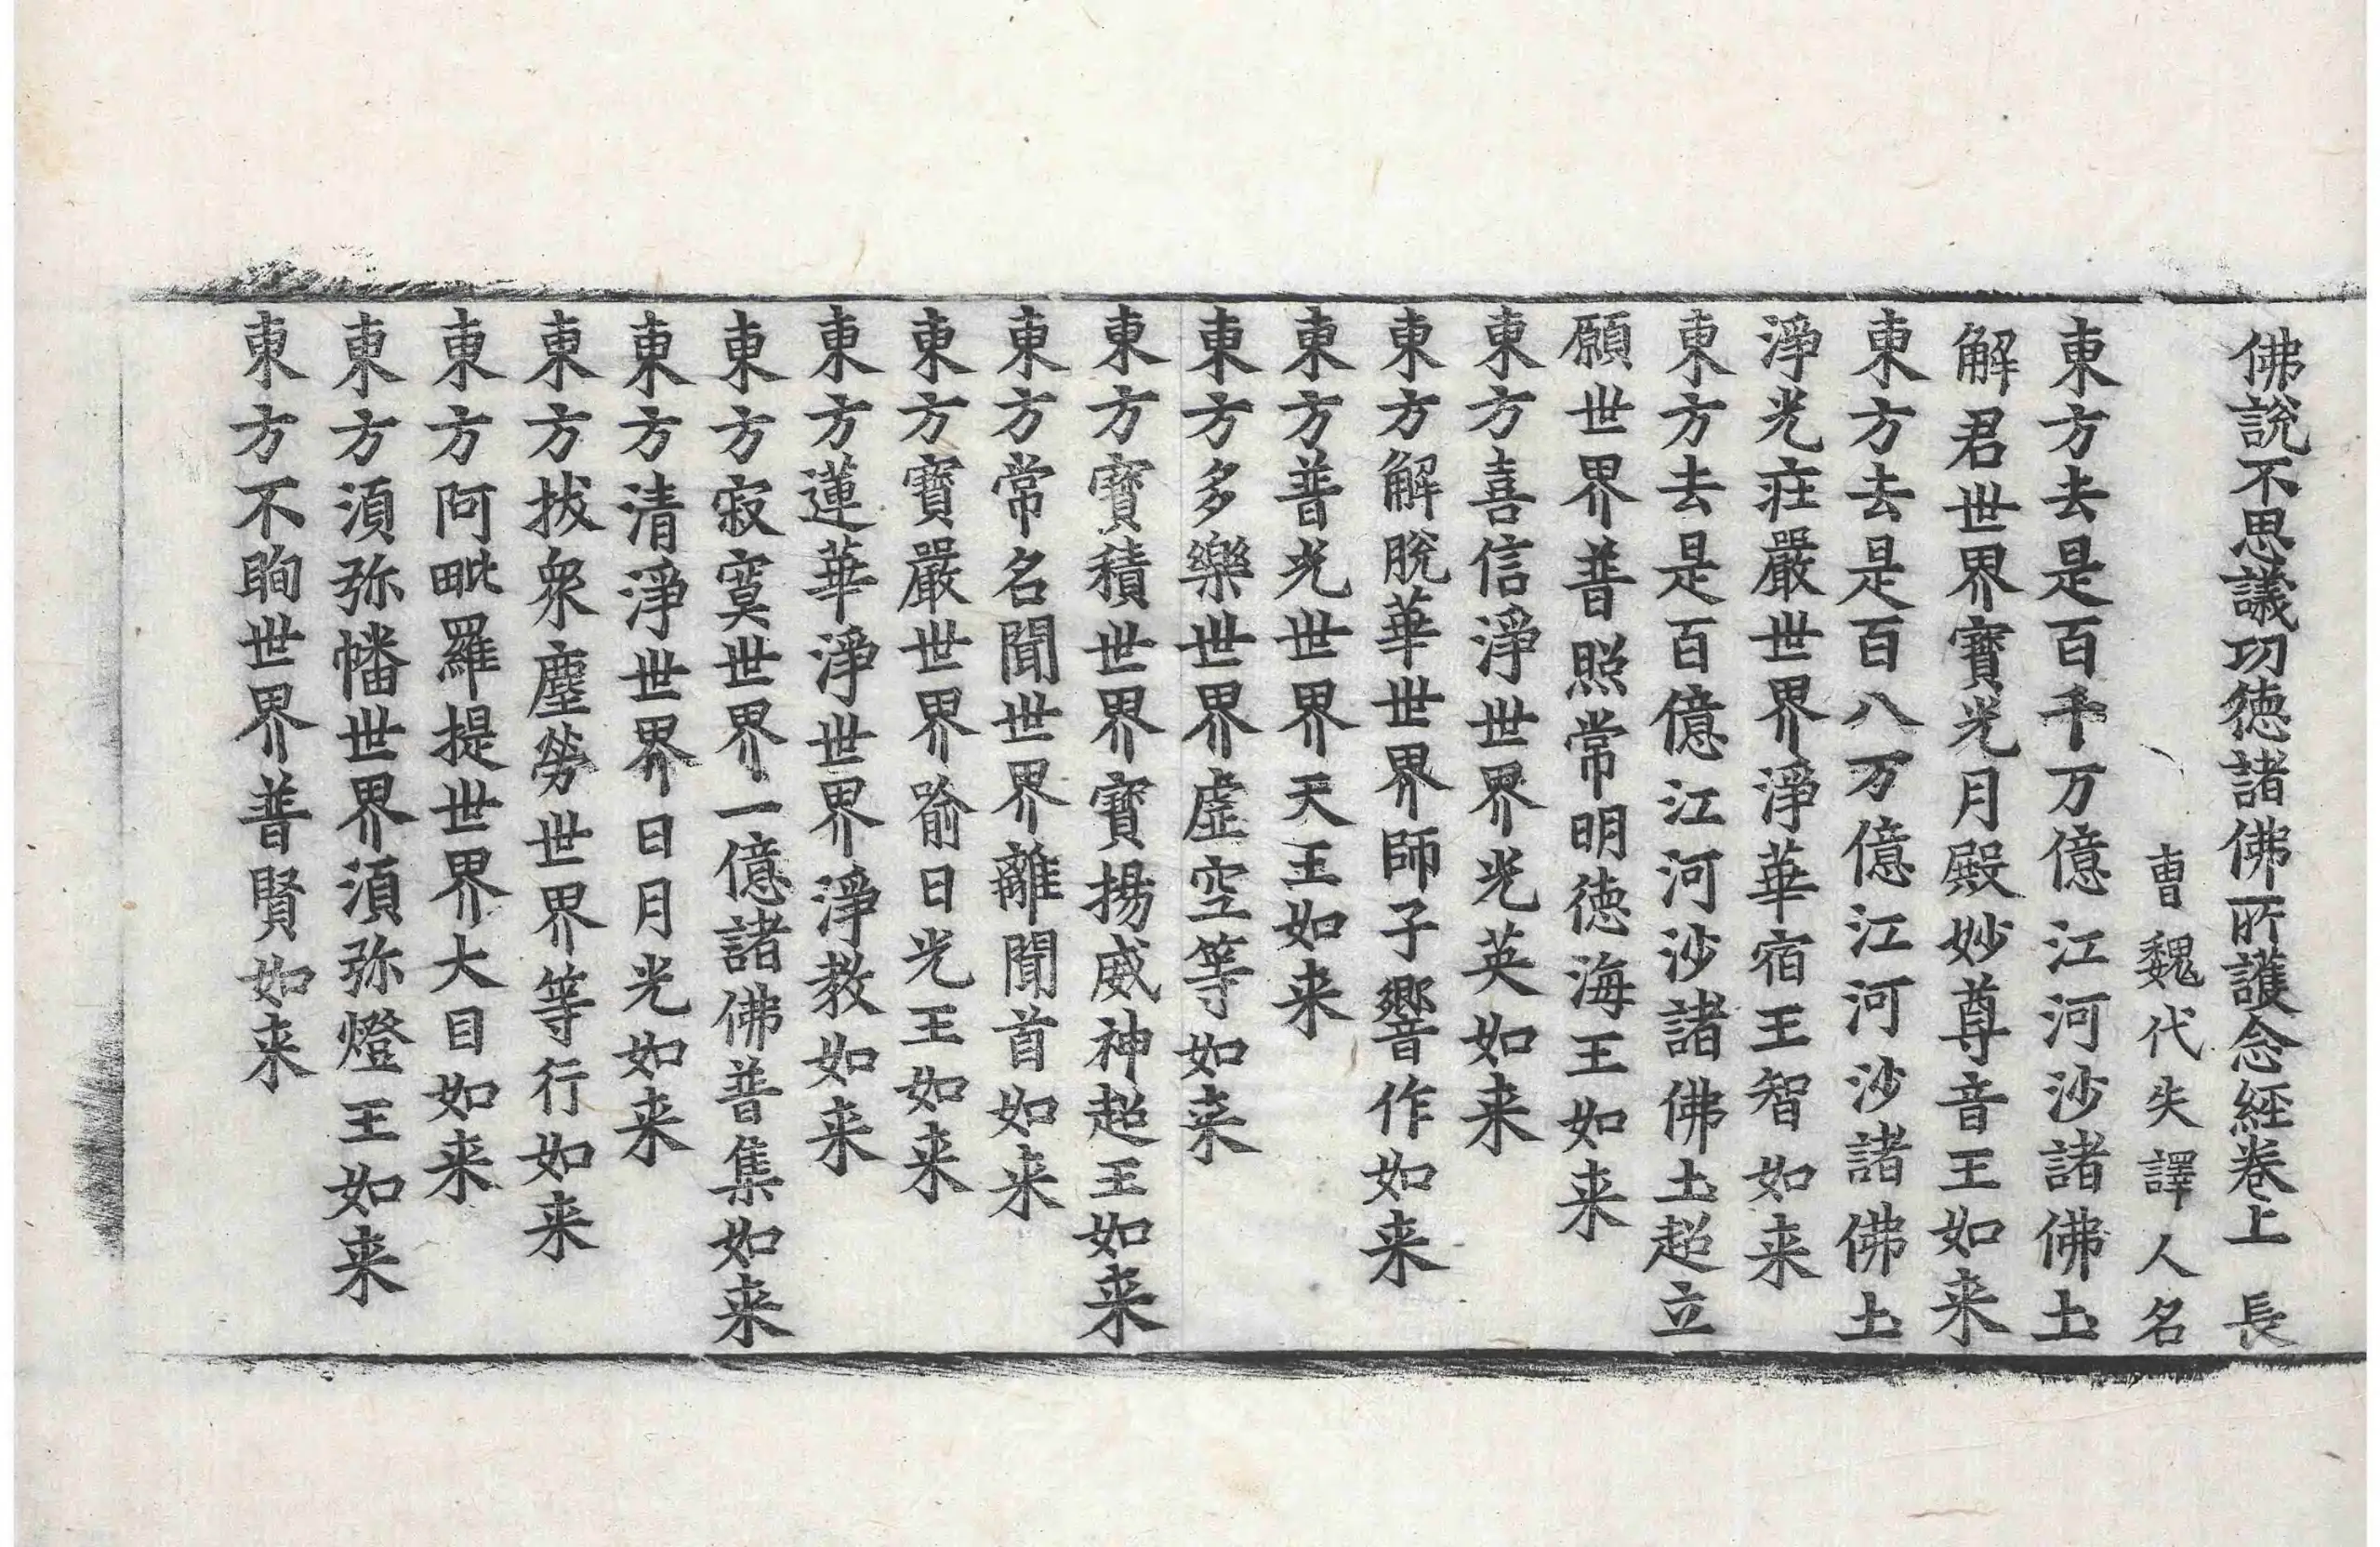 佛說不思議功徳諸佛所護念経卷上 長
曹魏代失譯人名
東方去是百千万億江河沙諸佛土
解君世界寶光月殿妙尊音王如来
東方去是百八万億江河沙諸佛土
淨光莊嚴世界淨華宿王智如来
東方去是百億江河沙諸佛土超立
願世界普照常明徳海王如来
東方喜信淨世界光英如来
東方解脫華世界師子響作如来
東方普光世界天王如来
東方多樂世界虛空等如来
東方寶積世界寶揚威神超王如来
東方常名聞世界離聞首如来
東方寶嚴世界喻日光王如来
東方蓮華淨世界淨教如来
東方寂寞世界一億諸佛普集如来
東方清淨世界日月光如来
東方拔衆塵勞世界等行如来
東方阿毗羅提世界大目如来
東方湏弥幡世界湏弥燈王如来
東方不眴世界普賢如来